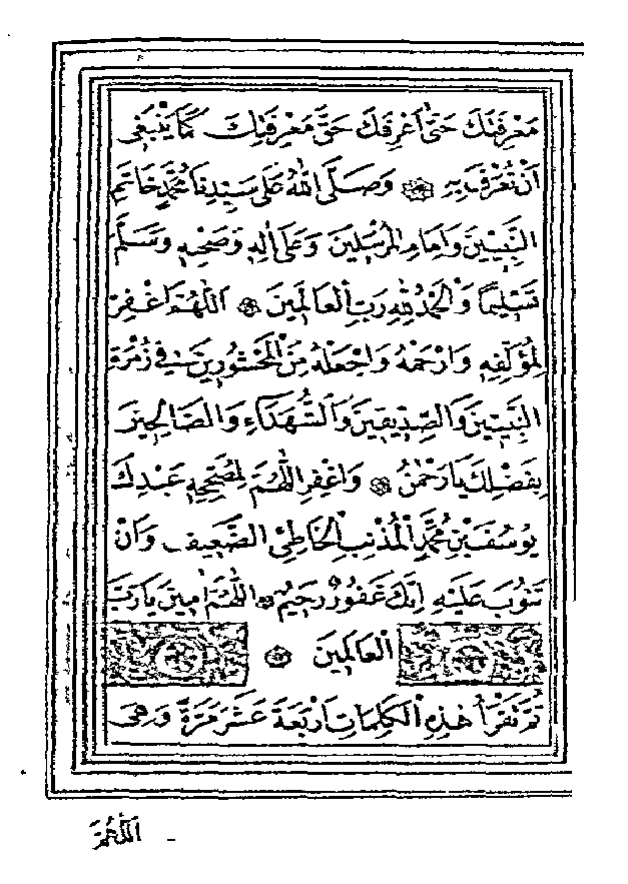 مَعْرِفَتِكَ حَتّٰى اَعْرِفَكَ حَقَّ مَعْرِفَتِكَ كَمَا يَنْبَغِى
اَنْ تُعْرَفَ بِهِ وَصَلَّى اللّٰهُ عَلَى سَيِّدِنَا مُحَمَّدٍ خَاتَمِ
النَّبِيِّينَ وَاِمَامِ الْمُرْسَلِينَ وَعَلٰى اٰلِهِ وَصَحْبِهِ وَسَلَّمَ
تَسْلِيمًا وَالْحَمْدُ لِلّٰهِ رَبِّ الْعَالَمِينَ اَللّٰهُمَّ اغْفِرْ
لِمُؤَلِّفِهِ وَارْحَمْهُ وَاجْعَلْهُ مِنَ الْمَحْشُورِينَ فِى زُمْرَةِ
النَّبِيِّينَ وَالصِّدِّيقِينَ وَالشُّهَدَاءِ وَالصَّالِحِينَ
بِفَضْلِكَ يَا رَحْمٰنُ وَاغْفِرِ اللّٰهُمَّ لِمُصَحِّحِهِ عَبْدِكَ
يُوسُفَ بْنِ مُحَمَّدٍ الْمُذْنِبِ الْخَاطِئِ الضَّعِيفِ وَاَنْ
تَتُوبَ عَلَيْهِ اِنَّكَ غَفُورٌ رَحِيمٌ اَللّٰهُمَّ اٰمِينَ يَارَبَّ
الْعَالَمِينَ
ثُمَّ تَقْرَأُ هٰذِهِ الْكَلِمَاتِ اَرْبَعَةَ عَشَرَ مَرَّةً وَهِىَ
اَللّٰهُمَّ